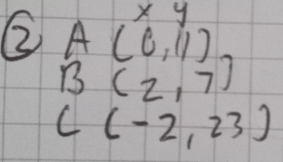 x y
② A (0,11)
B (2,7)
C (-2,23)